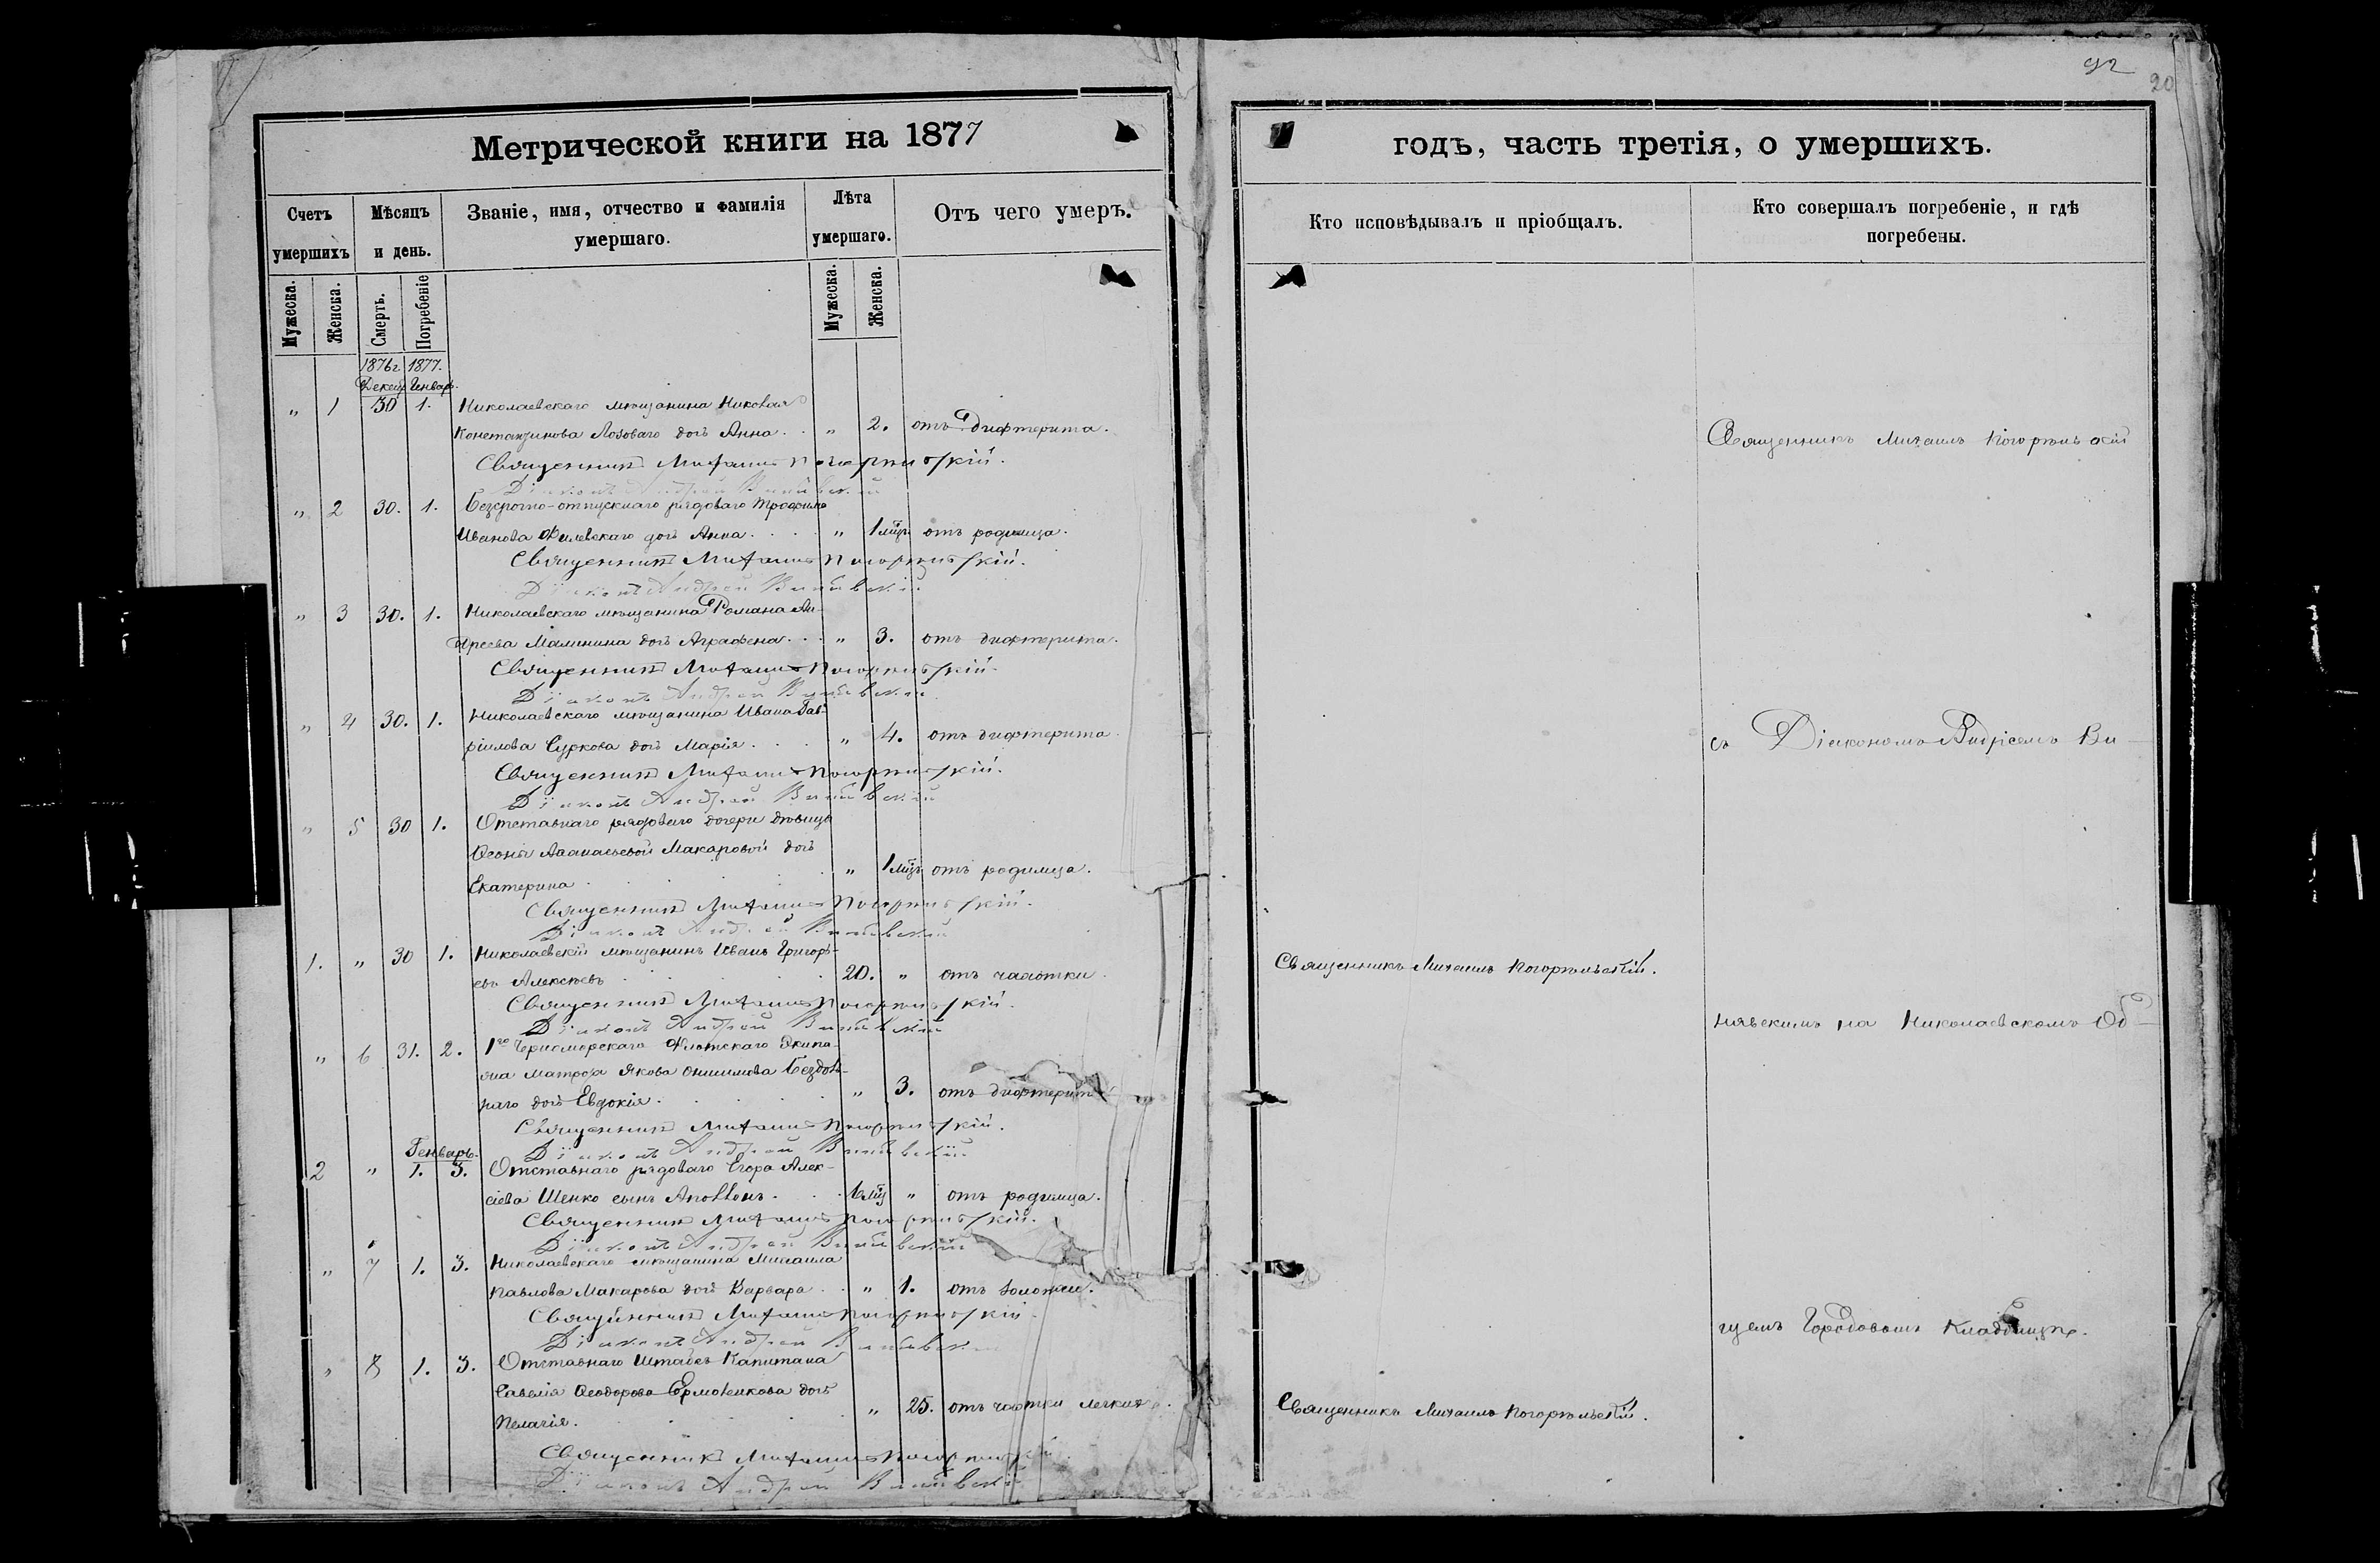 92
20
Метрической книги на 1877
годъ, часть третія, о умершихъ.
Счетъ умершихъ
Мѣсяцъ и день.
Званіе, имя, отчество и фамилія умершаго.
Лѣта умершаго.
Отъ чего умеръ.
Кто исповѣдывалъ и пріобщалъ.
Кто совершалъ погребеніе, и гдѣ погребены.
Мужеска. Женска. Смерть. Погребеніе Мужеска. Женска.
1876 г. 1877.
Декаб. Генварь.
„ 1 30 1. Николаевскаго мѣщанина Николая
Константинова Лозоваго дочь Анна. „ 2. отъ дифтерита.
Священникъ Михаилъ Погорѣльскій
Священникъ Михаилъ Погорѣльскій.
Діаконъ Андрей
„ 2 30. 1. Безсрочно-отпускнаго рядоваго Трофима
Иванова дочь Анна. „ 1 мѣс. отъ родимца.
Священникъ Михаилъ Погорѣльскій.
Діаконъ Андрей
„ 3 30. 1. Николаевскаго мѣщанина Романа Ан-
дреева Малинина дочь Аграфена. „ 3. отъ дифтерита.
Священникъ Михаилъ Погорѣльскій
Діаконъ Андрей
„ 4 30. 1. Николаевскаго мѣщанина Ивана Гав-
ріилова Суркова дочь Марія. „ 4. отъ дифтерита.
съ Діакономъ Андреемъ
Священникъ Михаилъ Погорѣльскій.
Діаконъ Андрей
„ 5 30 1. Отставнаго рядоваго дочери дѣвицы
Аѳанасьевой Макаровой дочь
Екатерина „ 1 мѣс. отъ родимца.
Священникъ Михаилъ Погорѣльскій.
Діаконъ Андрей
1. „ 30 1. Николаевскій мѣщанинъ Иванъ Григорь-
евъ Алексѣевъ 20. „ отъ чахотки.
Священникъ Михаилъ Погорѣльскій.
Священникъ Михаилъ Погорѣльскій.
Діаконъ Андрей
на Николаевскомъ Об-
„ 6 31. 2. 1го Черноморскаго Флотскаго Экипа-
жа матроса Якова Онисимова
дочь Евдокія. „ 3. отъ дифтерита
Священникъ Михаилъ Погорѣльскій.
Діаконъ Андрей
Генварь.
2 „ 1. 3. Отставнаго рядоваго Егора Алек-
сіева Шенко сынъ „ отъ родимца.
Священникъ Михаилъ Погорѣльскій.
Діаконъ Андрей
„ 7 1. 3. Николаевскаго мѣщанина Михаила
Павлова Макарова дочь Варвара. „ 1. отъ золотки.
Священникъ Михаилъ Погорѣльскій
Діаконъ Андрей
щемъ Городовомъ Кладбищѣ.
„ 8 1. 3. Отставнаго Штабсъ-Капитана
Савелія Ѳеодорова дочь
Пелагія. „ 25. отъ чахотки легкихъ.
Священникъ Михаилъ Погорѣльскій.
Священникъ Михаилъ Погорѣльскій
Діаконъ Андрей